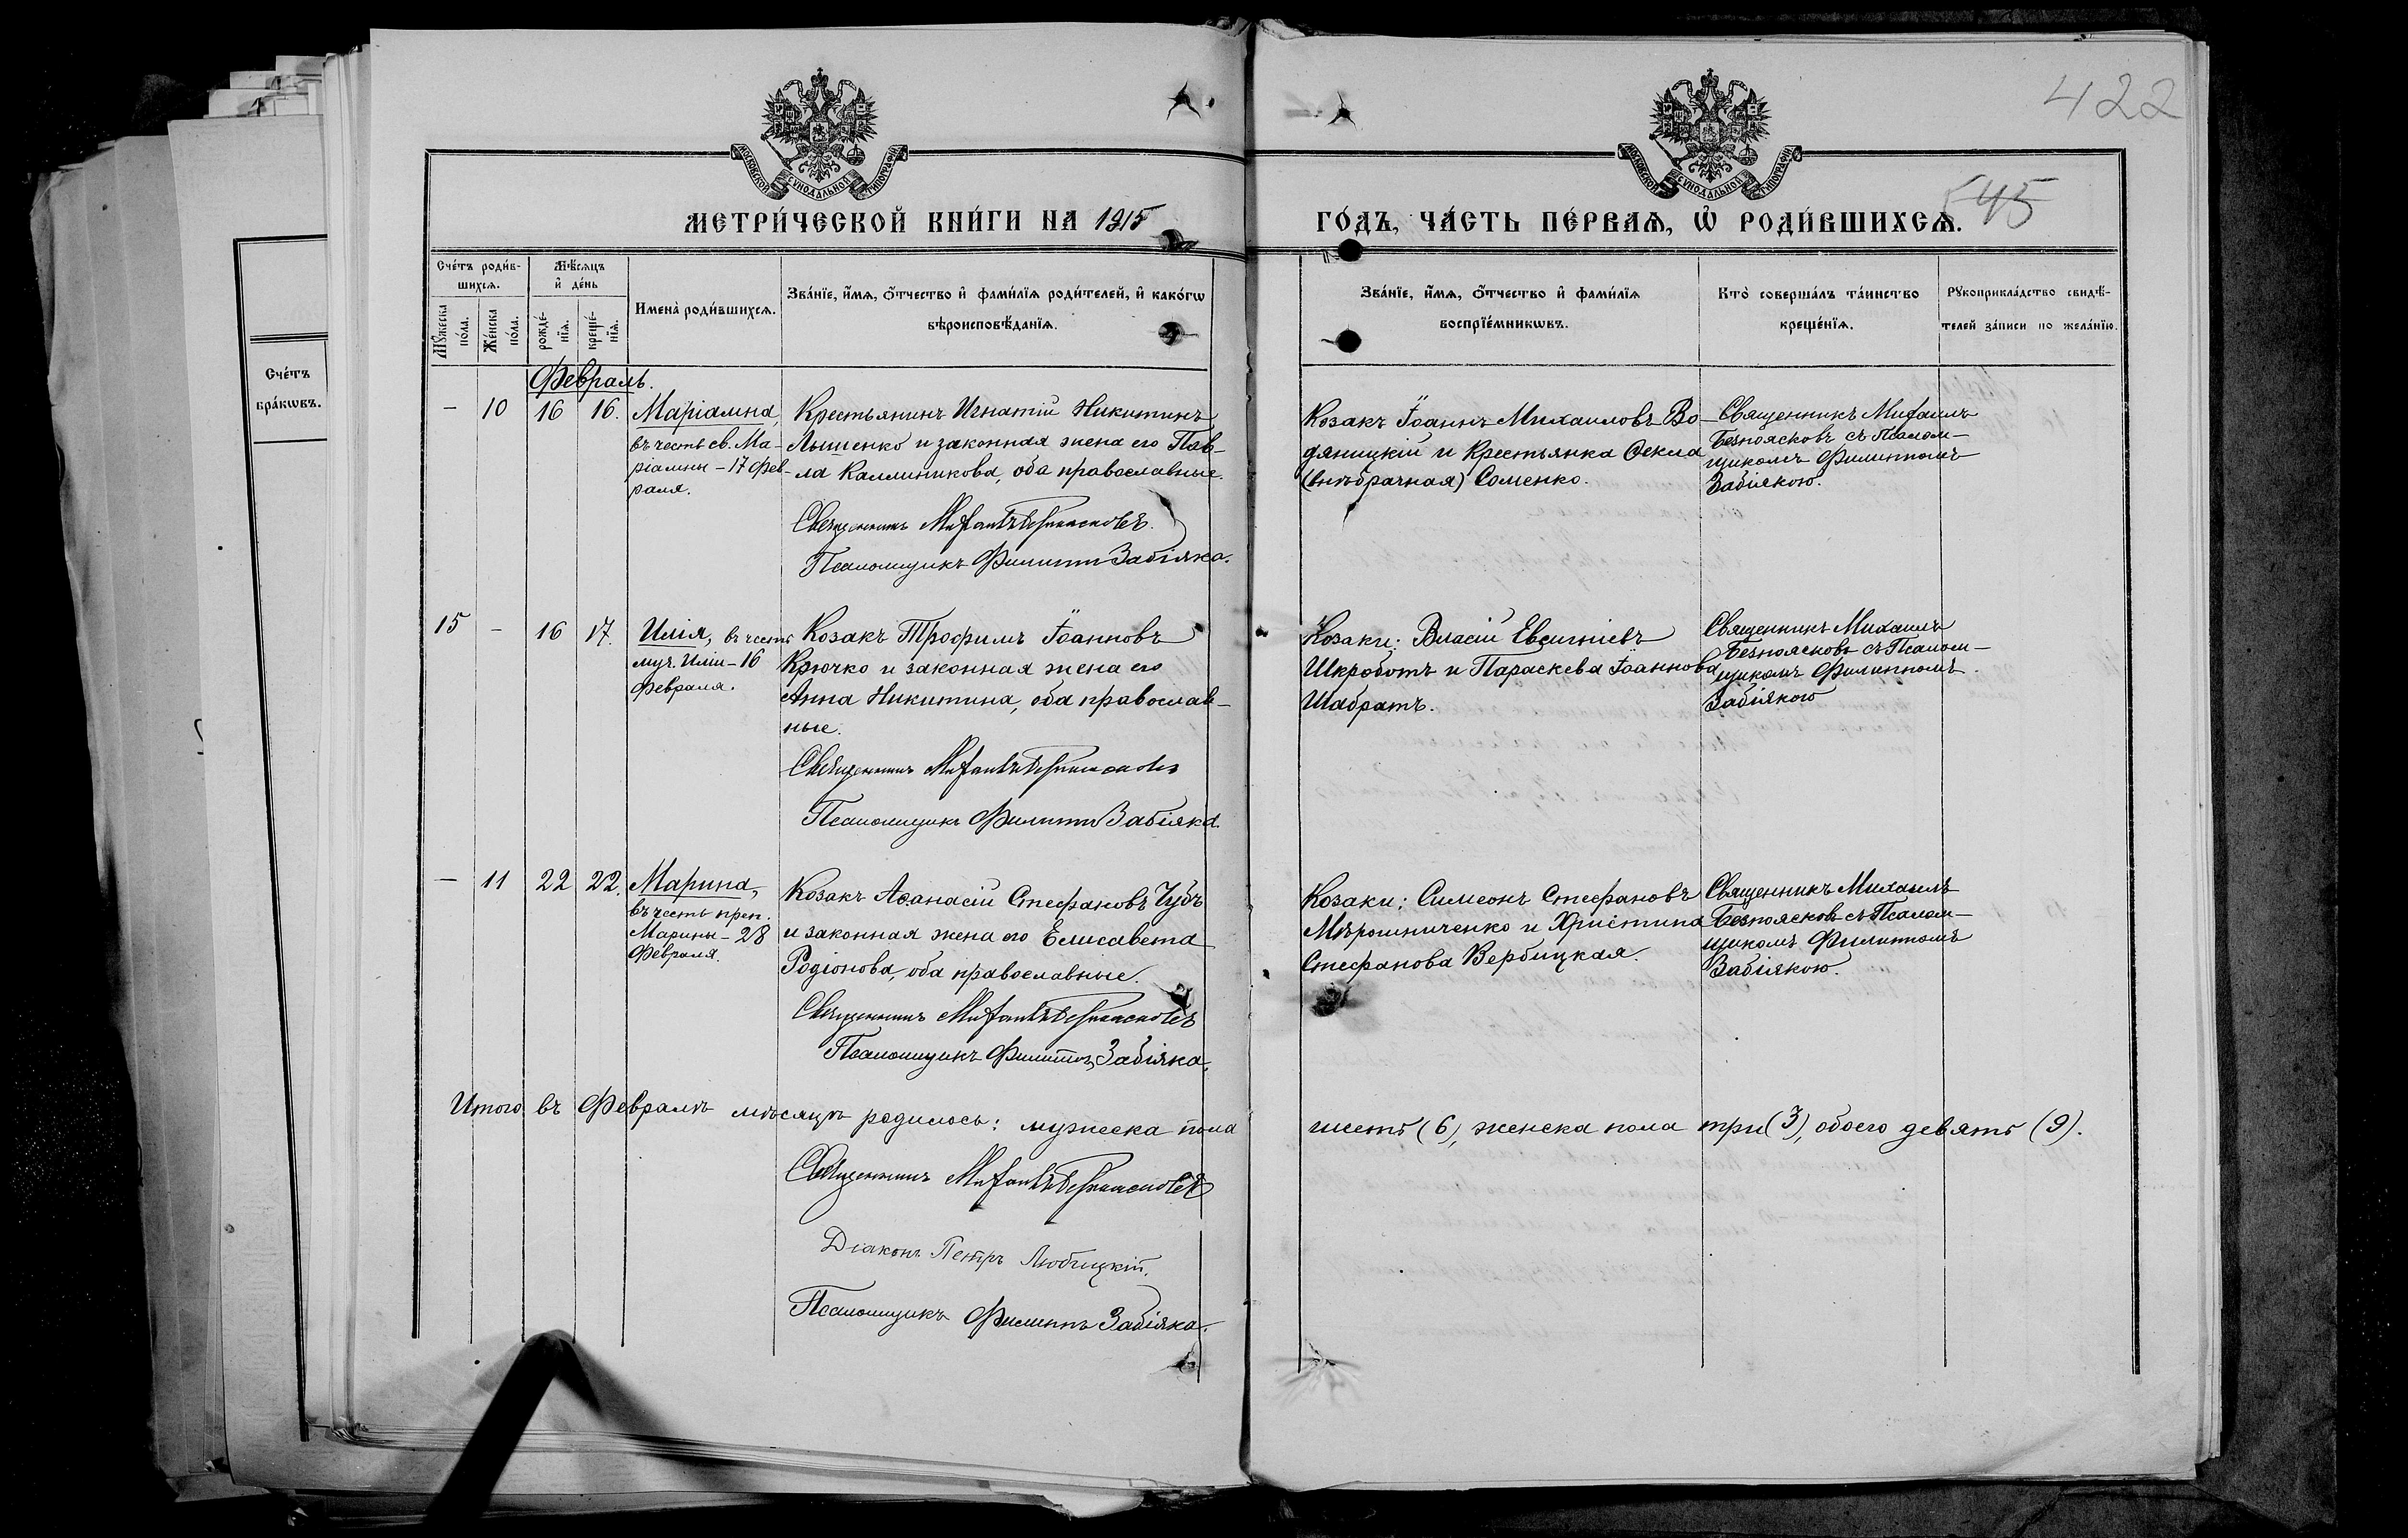 422
545
МОСКОВСКОЙ СѴНОДАЛЬНОЙ ТИПОГРАФІИ
МОСКОВСКОЙ СѴНОДАЛЬНОЙ ТИПОГРАФІИ
МЕТРИ́ЧЕСКОЙ КНИ́ГИ НА 1915
ГО́ДЪ, ЧА́СТЬ ПЕ́РВАѦ, Ѡ҆ РОДИ́ВШИХСѦ.
Счéтъ
брáкѡвъ.
Счéтъ роди́в-
шихсѧ.
Мꙋ́жеска
по́ла.
Жéнска
по́ла.
Мѣ́сѧцъ
и҆ дéнь
рождé-
нїѧ.
крещé-
нїѧ.
Именà роди́вшихсѧ.
Звáнїе, и҆́мѧ, ѻ҆́тчество и҆ фами́лїѧ роди́телей, и҆ какóгѡ
вѣроисповѣ́данїѧ.
Звáнїе, и҆́мѧ, ѻ҆́тчество и҆ фами́лїѧ
воспрїе́мникѡвъ.
Ктò совершáлъ тáинство
крещéнїѧ.
Рꙋкоприклáдство свидѣ́-
телей зáписи по желáнїю.
Февраль.
— 10 16 16.
Маріамна,
въ честь св. Ма-
ріамны - 17 фев-
раля.
Крестьянинъ Игнатій Никитинъ
Ляшенко и законная жена его Пав-
ла Каллиникова, оба православные.
Священникъ Михаилъ Безпоясковъ.
Псаломщикъ Филиппъ Забіяка.
Козакъ Іоаннъ Михаиловъ Во-
дяницкій и Крестьянка Ѳекла
(внѣбрачная) Соменко.
Священникъ Михаилъ
Безпоясковъ съ Псалом-
щикомъ Филиппомъ
Забіякою.
15 — 16 17.
Илія, въ честь
муч. Иліи - 16
февраля.
Козакъ Трофимъ Іоанновъ
Крючко и законная жена его
Анна Никитина, оба православ-
ные.
Священникъ Михаилъ Безпоясковъ
Псаломщикъ Филиппъ Забіяка.
Козаки: Власій Евсигніевъ
Шкроботъ и Параскева Іоаннова
Шабратъ.
Священникъ Михаилъ
Безпоясковъ съ Псалом-
щикомъ Филиппомъ
Забіякою
— 11 22 22.
Марина,
въ честь преп.
Марины - 28
Февраля.
Козакъ Аѳанасій Стефановъ Чубъ
и законная жена его Елисавета
Родіонова, оба православные.
Священникъ Михаилъ Безпоясковъ
Псаломщикъ Филиппъ Забіяка.
Козаки: Симеонъ Стефановъ
Мѣрошниченко и Христина
Стефанова Вербицкая.
Священникъ Михаилъ
Безпоясковъ съ Псалом-
щикомъ Филиппомъ
Забіякою.
Итого въ Февралѣ мѣсяцѣ родилось: мужеска пола
шесть (6), женска пола три (3), обоего девять (9).
Священникъ Михаилъ Безпоясковъ
Діаконъ Петръ Любицкій.
Псаломщикъ Филиппъ Забіяка.